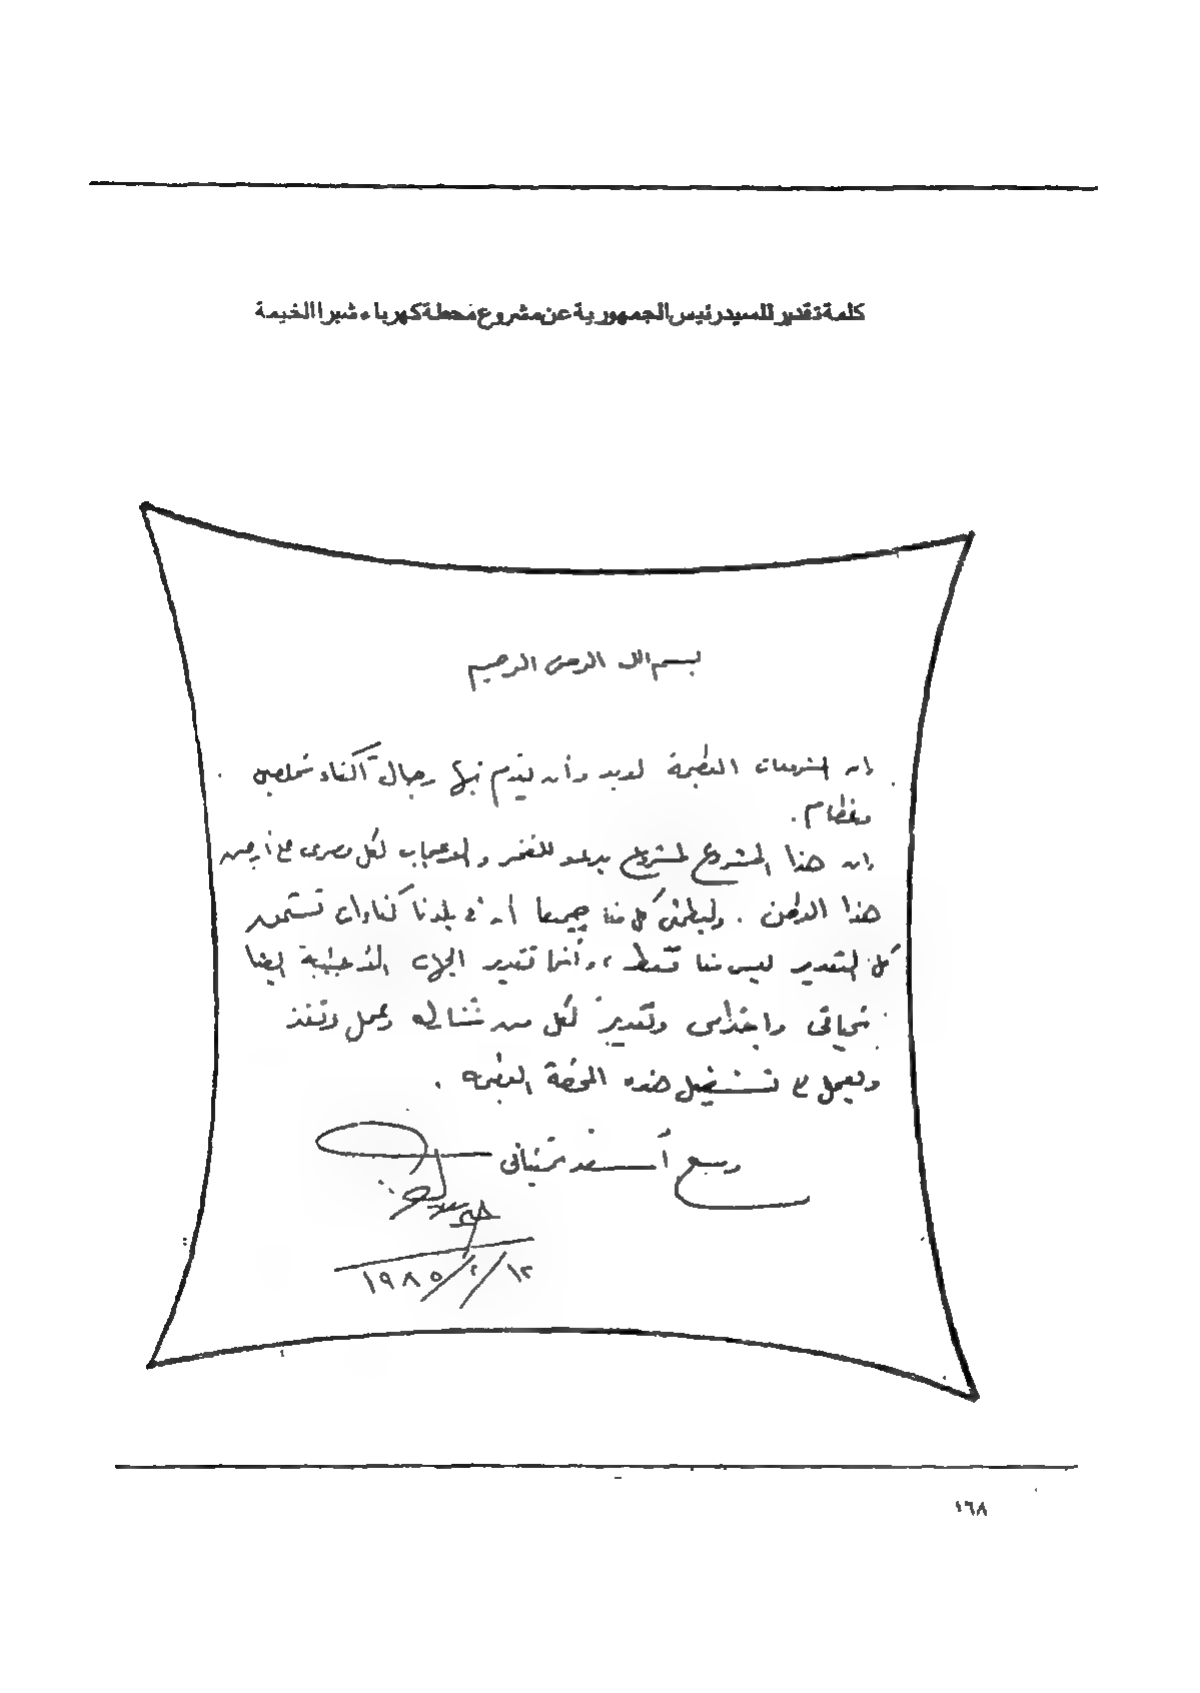 كلمة تقدير للسيد رئيس الجمهورية عن مشروع محطة كهرباء شبرا الخيمة
بسم الله الرحمن الرحيم
إن المشروعات العظيمة لابد وأن يقوم بها رجال أكفاء مخلصين
وعظام.
إن هذا المشروع لمشروع يدعو للفخر والاعجاب لكل مصرى على أرض
هذا الوطن . وليطمئن كل منا جميعا أن فى بلدنا كفاءات تستحق
كل التقدير ليس منا فقط ، وأنما تقدير الجهات الأجنبية ايضا
تحياتى واحترامى وتقديرى لكل من شارك وعمل ونفذ
ويعمل فى تشغيل هذه المحطة العظيمة .
ومع أسعد تمنياتى
١٩٨٥/٢/١٢
١٦٨